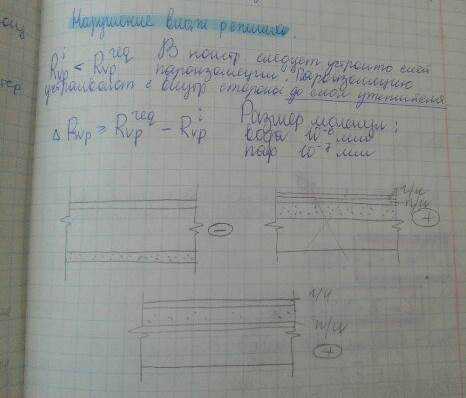 Нарушение влажн режима.
R vp i < R vp гед В констр следует устроить слой
пароизоляции. Пароизоляцию
устраивают с внутр стороны до слоя утеплителя
Δ R vp = R vp гед − R vp i Размер молекул:
вода 10⁻⁶ мм
пар 10⁻⁷ мм
г/и
п/и
−
+
г/и
п/и
+